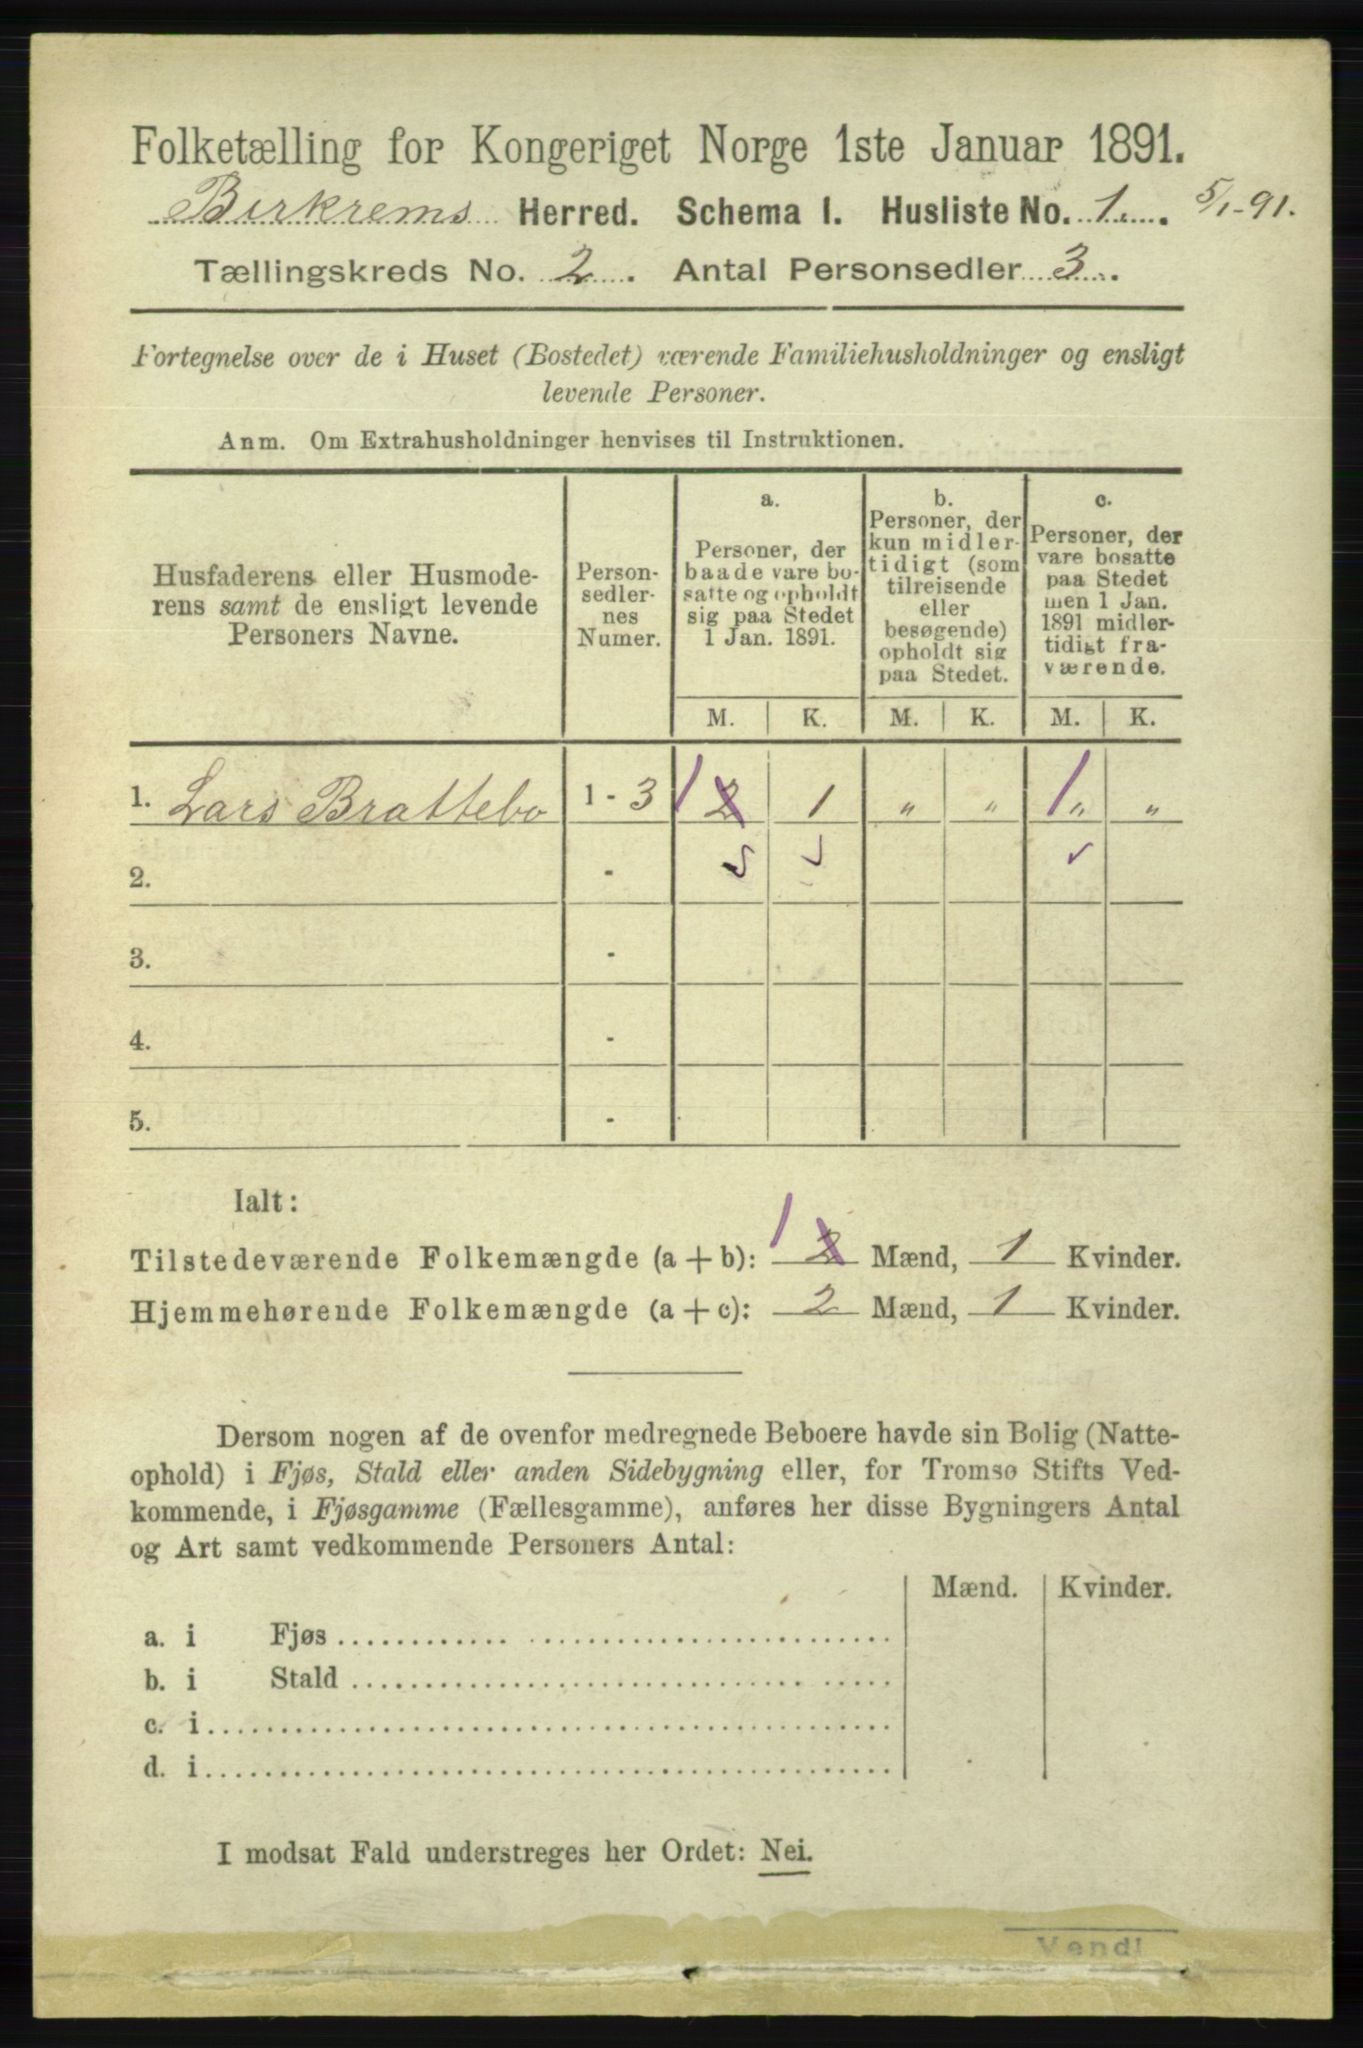 Folketælling for Kongeriget Norge 1ste Januar 1891.
Birkrems Herred. Schema I. Husliste No. 1. 5/1-91.
Tællingskreds No. 2. Antal Personsedler 3.
Fortegnelse over de i Huset (Bostedet) værende Familiehusholdninger og ensligt
levende Personer.
Anm. Om Extrahusholdninger henvises til Instruktionen.
Husfaderens eller Husmode-
rens samt de ensligt levende
Personers Navne.
Person-
sedler-
nes
Numer.
a.
Personer, der
baade vare bo-
satte og opholdt
sig paa Stedet
1 Jan. 1891.
b.
Personer, der
kun midler-
tidigt (som
tilreisende
eller
besøgende)
opholdt sig
paa Stedet.
c.
Personer, der
vare bosatte
paa Stedet
men 1 Jan.
1891 midler-
tidigt fra-
værende.
M. K. M. K. M. K.
1. Lars Brattebo 1 - 3 1 2 1 „ „ 1 „ „
2. -
3. -
4. -
5. -
Ialt:
Tilstedeværende Folkemængde (a + b): 1 2 Mænd, 1 Kvinder.
Hjemmehørende Folkemængde (a + c): 2 Mænd, 1 Kvinder.
Dersom nogen af de ovenfor medregnede Beboere havde sin Bolig (Natte-
ophold) i Fjøs, Stald eller anden Sidebygning eller, for Tromsø Stifts Ved-
kommende, i Fjøsgamme (Fællesgamme), anføres her disse Bygningers Antal
og Art samt vedkommende Personers Antal:
Mænd. Kvinder.
a. i Fjøs
b. i Stald
c. i
d. i
I modsat Fald understreges her Ordet: Nei.
Vend!